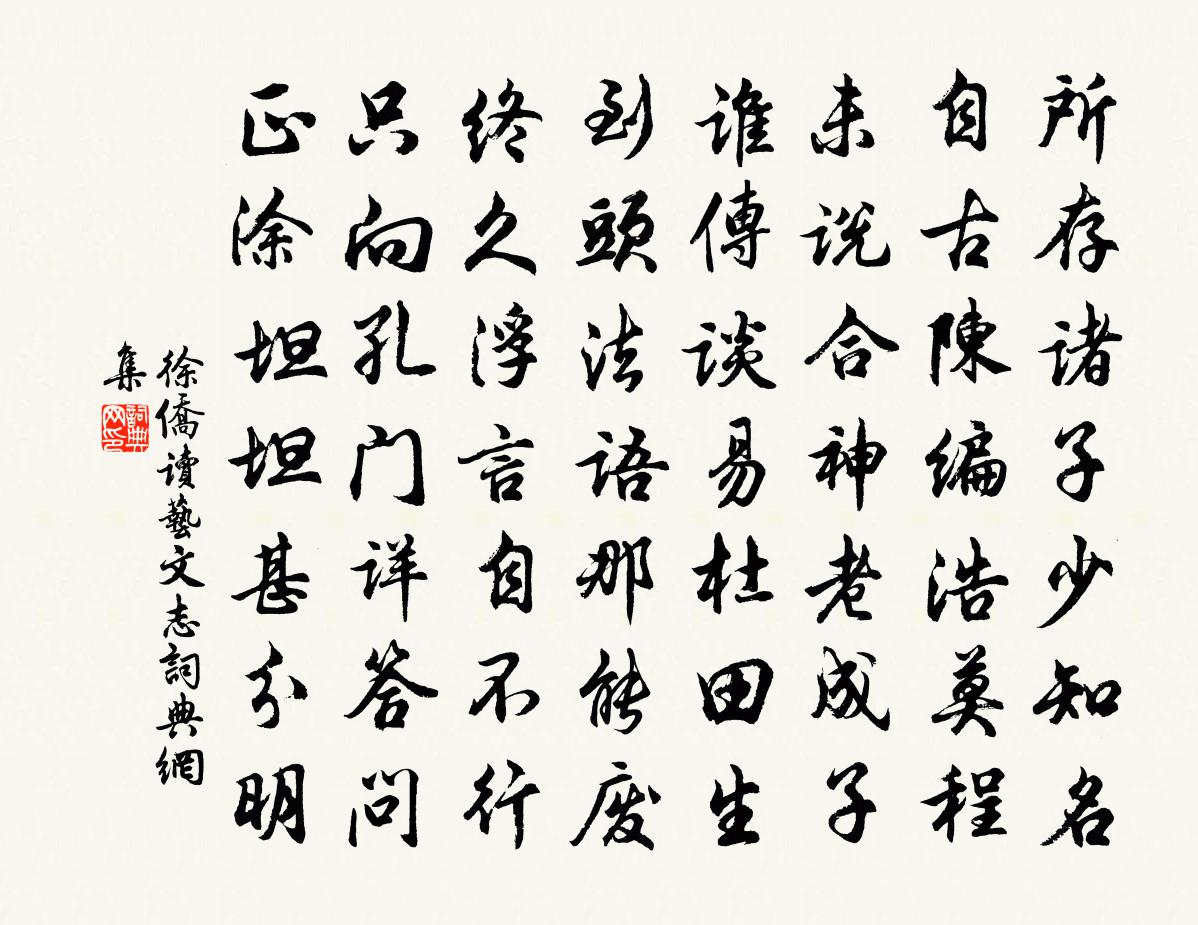 所存诸子少知名
自古陳编浩莫程
未说合神老成子
谁傳谈易杜田生
到頭法语那能废
终久浮言自不行
只向孔门详答問
正涂坦坦甚分明
徐僑读藝文志詞典網
集
詞典
网印